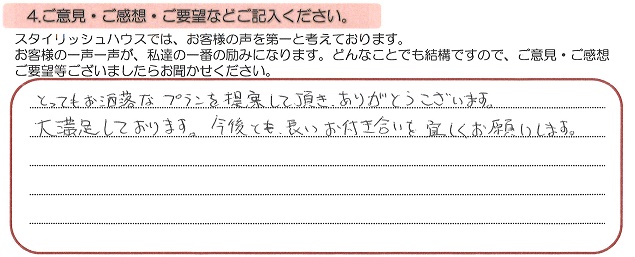 4.ご意見・ご感想・ご要望などご記入ください。
スタイリッシュハウスでは、お客様の声を第一と考えております。
お客様の一声一声が、私達の一番の励みになります。どんなことでも結構ですので、ご意見・ご感想
ご要望等ございましたらお聞かせください。
とってもお洒落なプランを提案して頂き、ありがとうございます。
大満足しております。今後とも、長いお付き合いを宜しくお願いします。